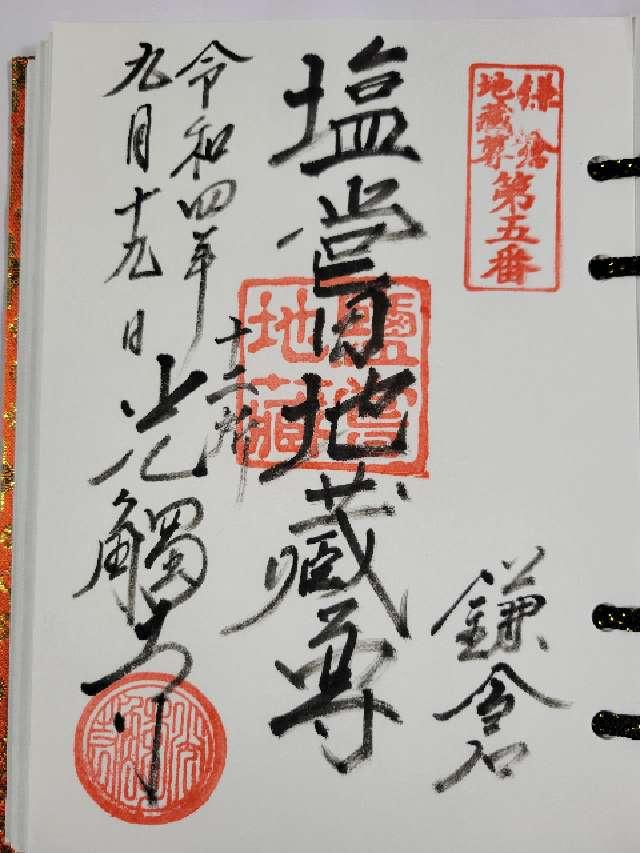 鎌倉
地蔵尊
第五番
鎌倉
塩嘗地蔵尊
鹽嘗
地蔵
十二所
光觸寺
令和四年
九月十九日